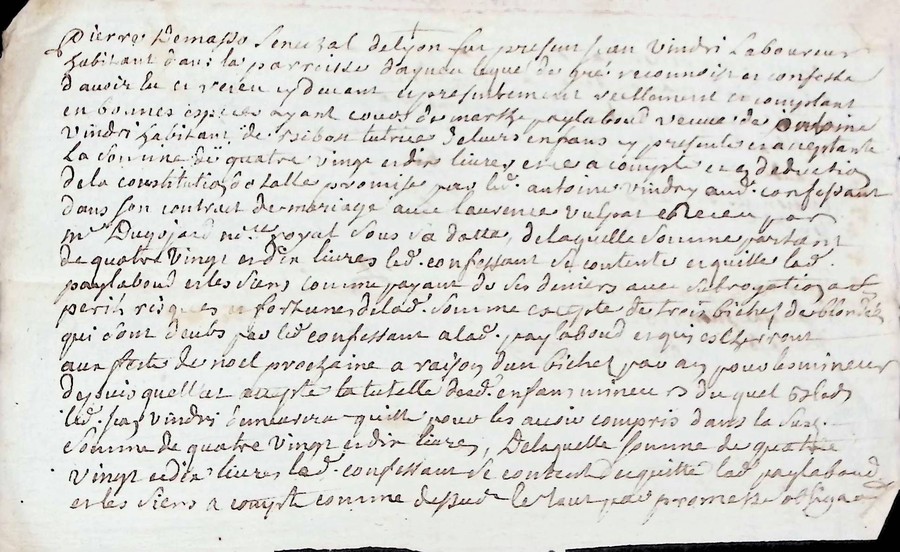 Pierre Demasso Senechal delyon fut present jean Vindri Laboureur
habitant dans la parroisse lequel de gré reconnoist et confesse
d'avoir eu et receu cydevant et presentement reellement et comptant
en bonnes especes ayant cours de marthe paylaboud veuve de antoine
Vindri habitant de tutrice de leurs enfans y presente et acceptante
La somme de quatre vingt et dix livres et ce a compte et en deduction
de la constitution a elle promise par led. antoine Vindry aud. confessant
dans son contract de mariage avec laurence vulpat receu par
me Dugojard nore royal sous sa datte, de laquelle somme partant
de quatre vingt et dix livres led. confessant se contente et quitte lad.
paylaboud et les siens comme payant de ses deniers avec subrogation a ses
perils risques et fortunes de lad. somme de trois bichets de bled
qui sont deubs par led. confessant a lad. paylaboud et qui
aux festes de noel prochaine a raison d'un bichet par an pour les mineurs
depuis la tutelle desd. enfans mineurs duquel bled
led. jean vindri demeurera quitte pour les avoir compris dans la susd.
somme de quatre vingt et dix livres, De laquelle somme de quatre
vingt et dix livres led. confessant se contente et quitte lad. paylaboud
et les siens a compte comme dessus le tout par promesse obligaon